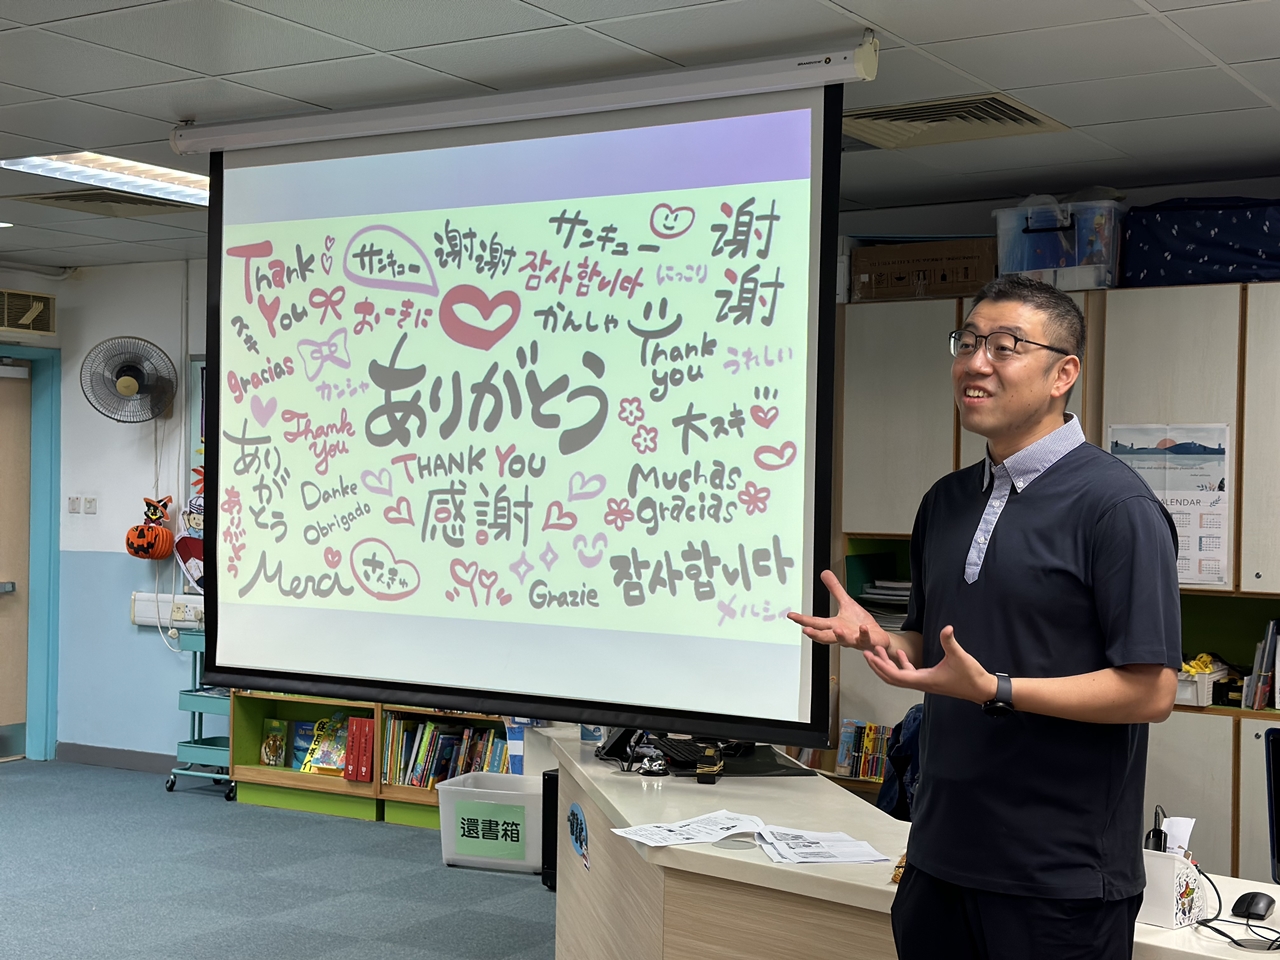 Thank
You
サンキュー
謝謝
サンキュー
謝
謝
잠사합니다
にっこり
スキ
おーきに
かんしゃ
Thank
you
うれしい
gracias
カンシャ
ありがとう
大スキ
Thank
you
ありがとう
THANK YOU
Muchas
gracias
Danke
Obrigado
感謝
ありがとう
Merci
さんきゅ
Grazie
잠사합니다
メルシィ
CALENDAR
還書箱